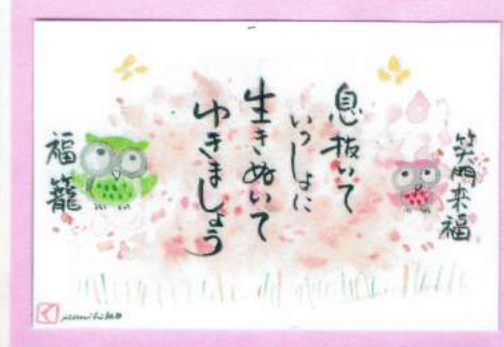 笑門来福
息抜いて
いっしょに
生きぬいて
ゆきましょう
福籠